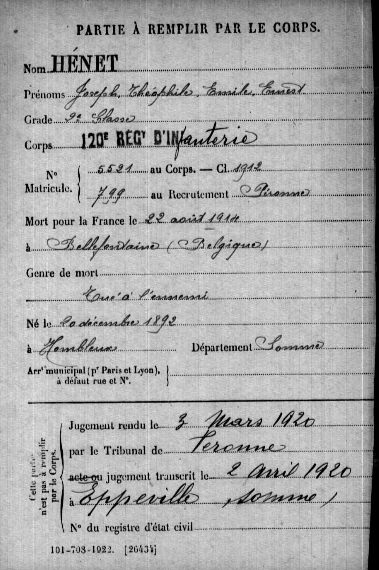 PARTIE À REMPLIR PAR LE CORPS.
Nom HÉNET
Prénoms Joseph, Théophile, Emile, Ernest
Grade 2e Classe
Corps 120E RÉGT D'Infanterie
N° Matricule. 5521 au Corps. — Cl. 1912
799 au Recrutement Péronne
Mort pour la France le 22 août 1914
à Bellefontaine (Belgique)
Genre de mort
Tué à l'ennemi
Né le 20 décembre 1892
à Hombleux Département Somme
Arrt municipal (pr Paris et Lyon), à défaut rue et N°.
Cette partie n'est pas à remplir par le Corps.
Jugement rendu le 3 Mars 1920
par le Tribunal de Peronne
acte ou jugement transcrit le 2 Avril 1920
à Eppeville (Somme)
N° du registre d'état civil
101-708-1922. [26434]